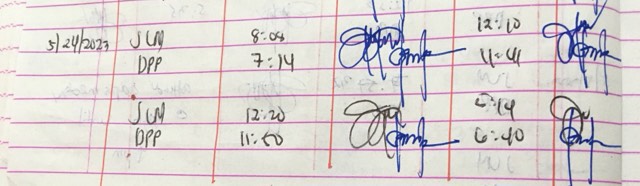 5/24/2023 JLM 8:08 12:10
DPP 7:14 11:41
JLM 12:20 5:14
DPP 11:50 6:40